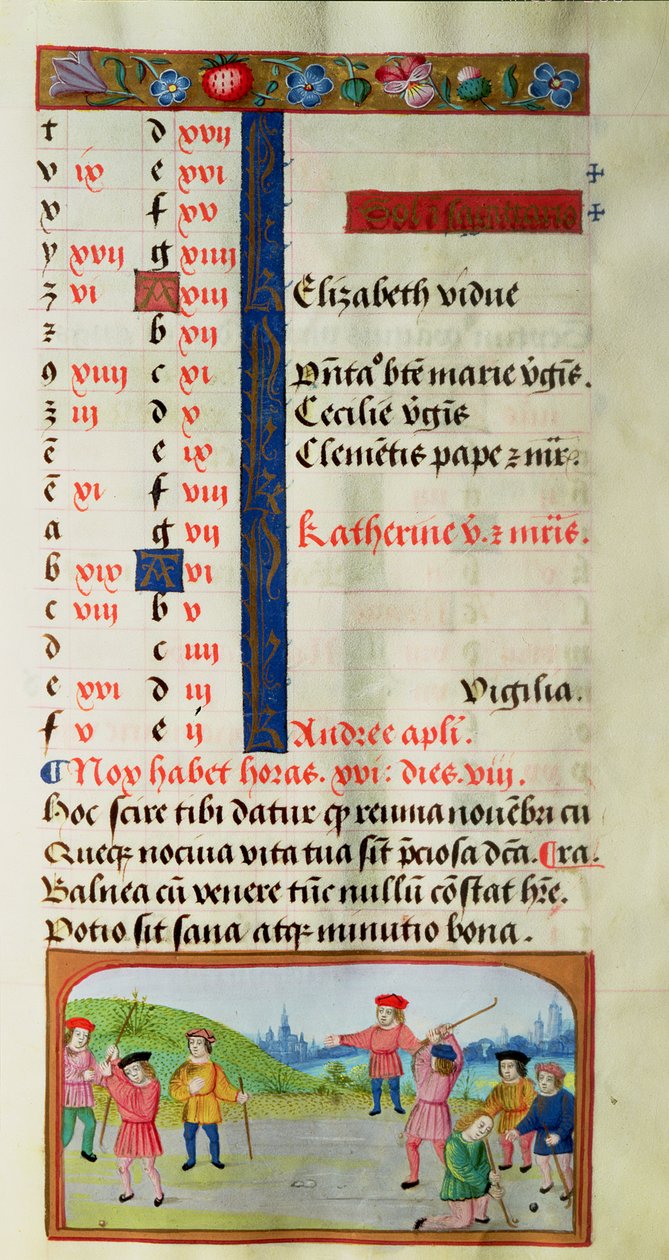 t d xvij
v ix e xvi
x f xv
Sol ī sagittario
y xvij g xiiij
z vi A xiij Elizabeth vidue
z b xij
9 xiiij c xi Pñtaᵒ bt̄e marie v̄gīs.
z iij d x Cecilie v̄gīs
ē e ix Clemētis pape z mr̄.
ē xi f viij
a g vij Katherine v̄. z mr̄is.
b xix A vi
c viij b v
d c iiij
e xvi d iij Vigilia.
f v e ij Andree apl̄i.
¶ Nox habet horas. xvi: dies. viij.
Hoc scire tibi datur qꝫ reuma nouēbri cu
Queqꝫ nociua vita tua sīt p̄ciosa dc̄a. ¶ra.
Balnea cū venere tūc nullū cōstat hr̄e.
Potio sit sana atqꝫ minutio bona.